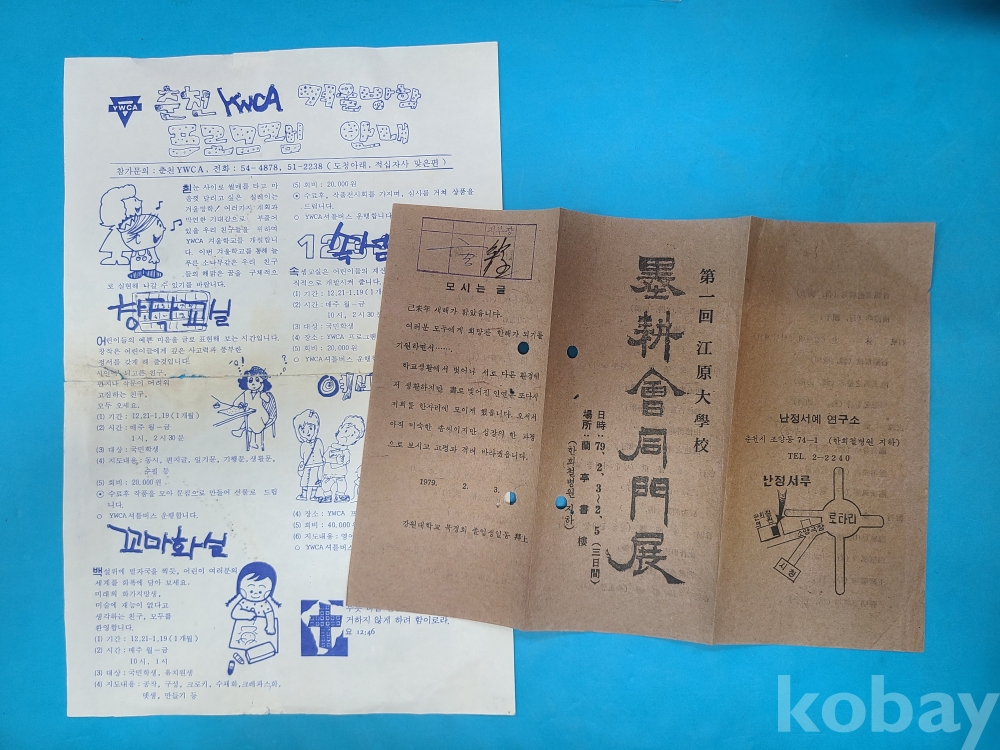 YWCA
춘천 YWCA 겨울방학
프로그램 안내
참가문의 : 춘천YWCA, 전화 : 54-4878, 51-2238 (도청아래, 적십자사 맞은편)
흰눈 사이로 썰매를 타고 마
음껏 달리고 싶은 설레이는
겨울방학! 여러가지 계획과
막연한 기대감으로 부풀어
있을 우리 친구들을 위하여
YWCA 겨울학교를 개설합니
다. 이번 겨울학교를 통해 늘
푸른 소나무같은 우리 친구
들의 해맑은 꿈을 구체적으
로 실현해 나갈 수 있기를 바랍니다.
창작교실
어린이들의 예쁜 마음을 글로 표현해 보는 시간입니다.
창작은 어린이들에게 깊은 사고력과 풍부한
정서를 갖게 해 줄것입니다.
시인이 되고픈 친구,
편지나 작문이 어려워
고심하는 친구,
모두 오세요.
(1) 기간 : 12.21-1.19 (1개월)
(2) 시간 : 매주 월-금
1시, 2시 30분
(3) 대상 : 국민학생
(4) 지도내용 : 동시, 편지글, 일기문, 기행문, 생활문,
수필 등
(5) 회비 : 20,000원
※ 수료후 작품을 모아 문집으로 만들어 선물로 드립
니다.
○ YWCA셔틀버스 운행합니다.
꼬마화실
백설위에 발자국을 찍듯, 어린이 여러분의
세계를 화폭에 담아 보세요.
미래의 화가지망생,
미술에 재능이 없다고
생각하는 친구, 모두를
환영합니다.
(1) 기간 : 12.21-1.19 (1개월)
(2) 시간 : 매주 월-금
10시, 1시
(3) 대상 : 국민학생, 유치원생
(4) 지도내용 : 공작, 구성, 크로키, 수채화, 크레파스화,
뎃생, 만들기 등
(5) 회비 : 20,000원
※ 수료후, 작품전시회를 가지며, 심사를 거쳐 상품을
드립니다.
○ YWCA셔틀버스 운행합니다
속셈
속셈교실은 어린이들의 계산
(1) 기간 : 12.21-1.19 (1개
(2) 시간 : 매주 월-금
10시, 2시 30
(3) 대상 : 국민학생
(4) 장소 : YWCA 프로그램
(5) 회비 : 20,000원
○ YWCA셔틀버스 운행합
예
(4) 장소 : YWCA
(5) 회비 : 40,000
(6) 지도내용 :
○ YWCA셔틀버
거하지 않게 하려 함이로라.
요 12:46
모시는 글
己未年 새해가 밝았읍니다.
여러분 도두에게 희망찬 한해가 되기를
기원하면서……
학교생활에서 벗어나 서로 다른 환경에
서 생활하지만 書로 맺어진 인연은 또다시
저희를 한자리에 모이게 했읍니다. 오셔서
아직 미숙한 솜씨이지만 성장의 한 과정
으로 보시고 고견과 격려 바라겠읍니다.
1979. 2. 3.
강원대학교 묵경회 졸업생일동 拜上
第一回 江原大學校
墨耕會同門展
日時 : 79. 2. 3~2. 5 (三日間)
場所 : 蘭亭書樓
(한희철병원 지하)
난정서예 연구소
춘천시 조양동 74-1 (한희철병원 지하)
TEL. 2-2240
난정서루
로타리
소양극장
시청
kobay